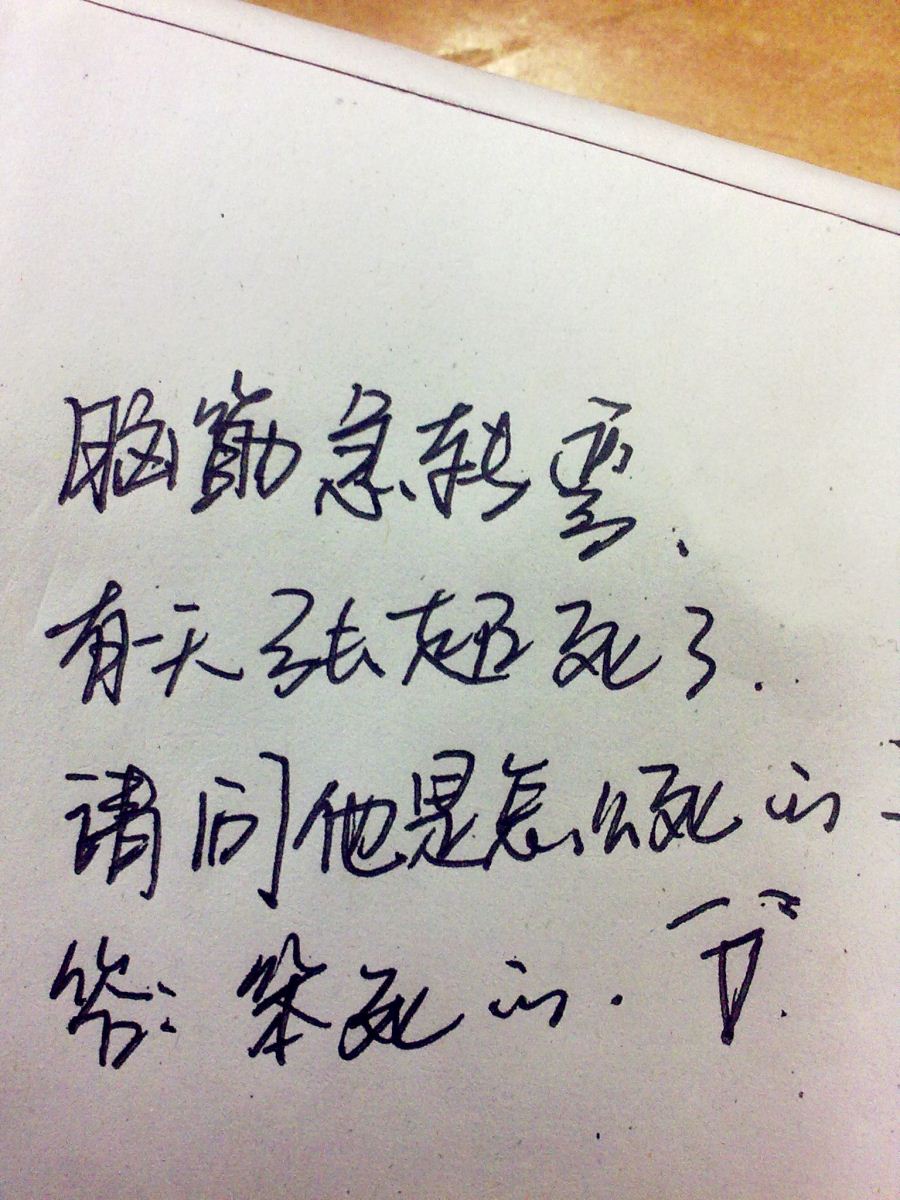 脑筋急转弯.
有一天张超死了.
请问他是怎么死的
答:笨死的.